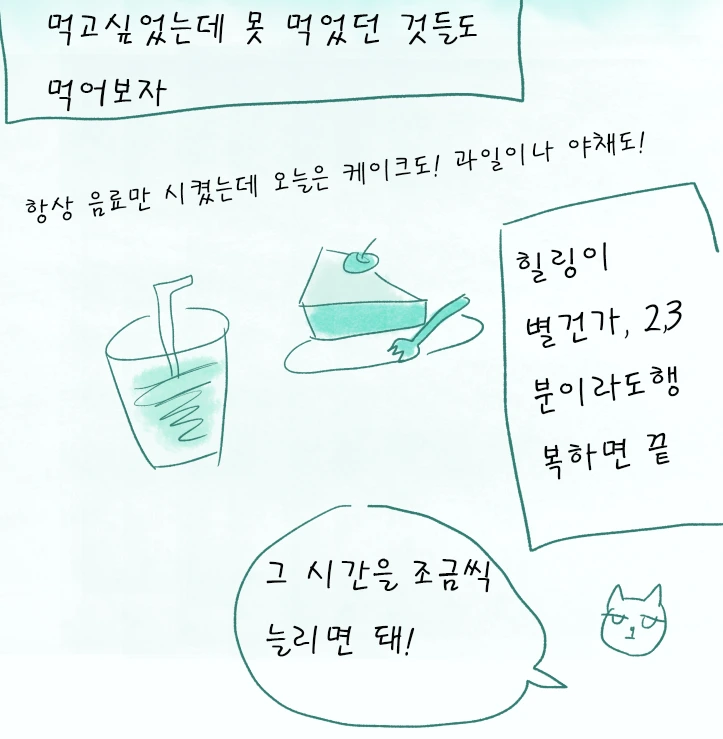 먹고싶었는데 못 먹었던 것들도
먹어보자
항상 음료만 시켰는데 오늘은 케이크도! 과일이나 야채도!
힐링이
별건가, 2,3
분이라도행
복하면 끝
그 시간을 조금씩
늘리면 돼!